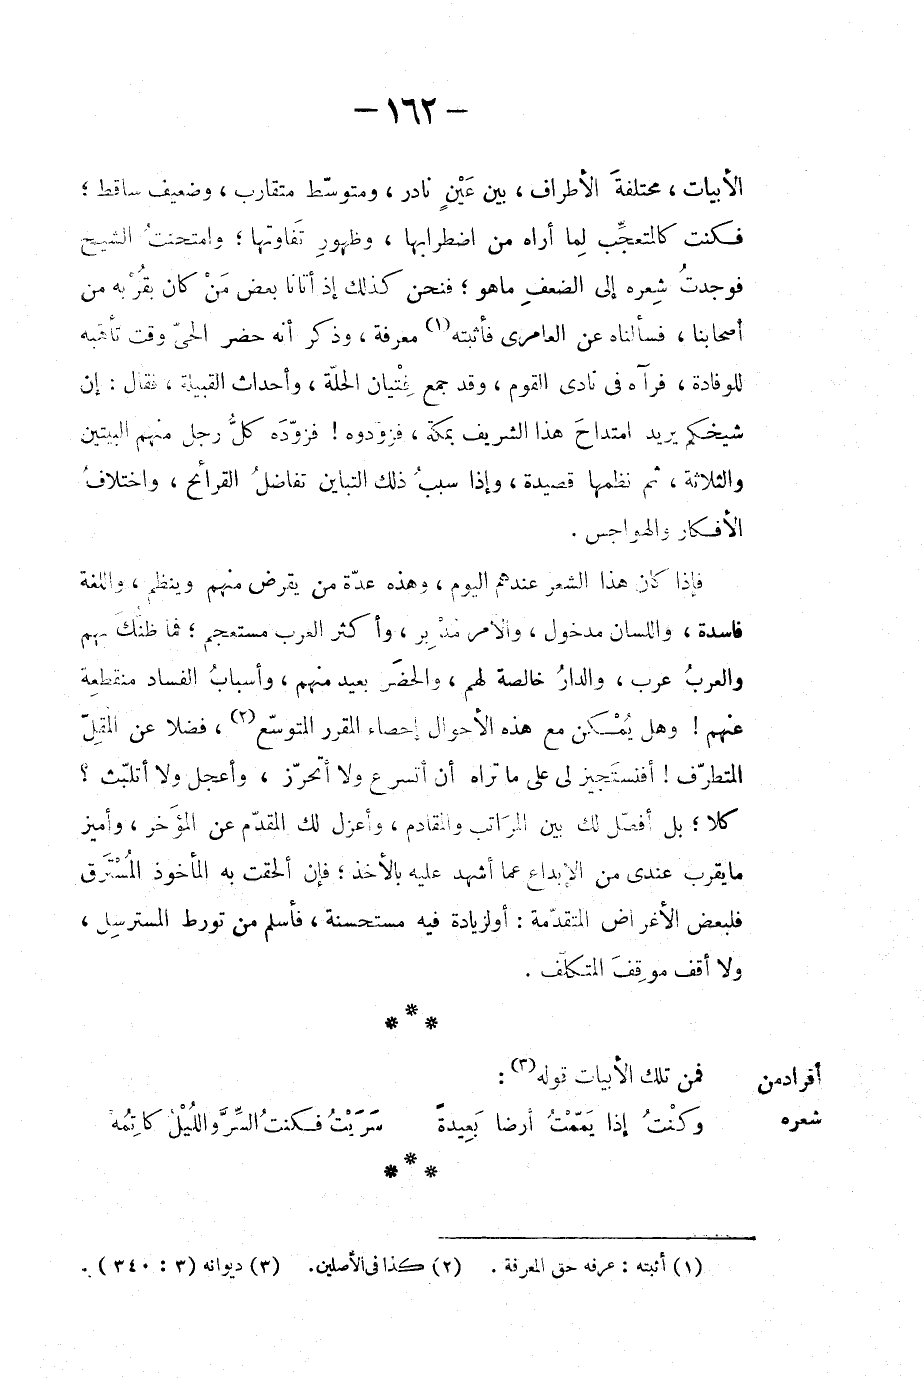 — ١٦٢ —
الأبيات ، مختلفةَ الأطراف ، بين عَيْنٍ نادر ، ومتوسّط متقارب ، وضعيف ساقط ؛
فكنت كالمتعجِّب لِما أراه من اضطرابها ، وظهورِ تَفاوتها ؛ وامتحنتُ الشيخ
فوجدتُ شِعره إلى الضعفِ ماهو ؛ فنحن كذلك إذ أتانا بعض مَنْ كان بقُرْبه من
أصحابنا ، فسألناه عن العامرى فأثبته(١) معرفة ، وذكر أنه حضر الحىّ وقت تأهّبه
للوفادة ، فرآه فى نادى القوم ، وقد جمع فِتْيان الحلّة ، وأحداث القبيلة ، فقال : إن
شيخكم يريد امتداحَ هذا الشريف بمكة ، فزوّدوه ! فزوّدَه كلُّ رجل منهم البيتين
والثلاثة ، ثم نظمها قصيدة ، وإذا سببُ ذلك التباين تفاضلُ القرائح ، واختلافُ
الأفكار والهواجس .
فإذا كان هذا الشعر عندهم اليوم ، وهذه عدّة من يقرض منهم وينظم ، واللغة
فاسدة ، واللسان مدخول ، والأمر مُدْبِر ، وأكثر العرب مستعجم ؛ فما ظنُّكَ بهم
والعربُ عرب ، والدارُ خالصة لهم ، والحضَر بعيد منهم ، وأسبابُ الفساد منقطعة
عنهم ! وهل يُمْكن مع هذه الأحوال إحصاء المقرر المتوسّع(٢) ، فضلا عن المُقِلّ
المتطرّف ! أفتستَجيز لى على ما تراه أن أتسرع ولا أتحرّز ، وأعجل ولا أتلبّث ؟
كلا ؛ بل أفصّل لك بين المرَاتب والمقادم ، وأعزل لك المقدّم عن المؤخر ، وأميز
مايقرب عندى من الإبداع عما أشهد عليه بالأخذ ؛ فإن ألحقت به المأخوذ المُسْتَرَق
فلبعض الأغراض المتقدّمة : أولزيادة فيه مستحسنة ، فأسلم من تورط المسترسِل ،
ولا أقف موقِفَ المتكلّف .
***
أفراد من
شعره
فمن تلك الأبيات قوله(٣) :
وكنْتُ إذا يَمّمْتُ أرضا بَعِيدةً سَرَيْتُ فكنتُ السِّرَّ واللَّيْلُ كاتِمُهْ
***
(١) أثبته : عرفه حق المعرفة . (٢) كذا فى الأصلين. (٣) ديوانه (٣ : ٣٤٠) .